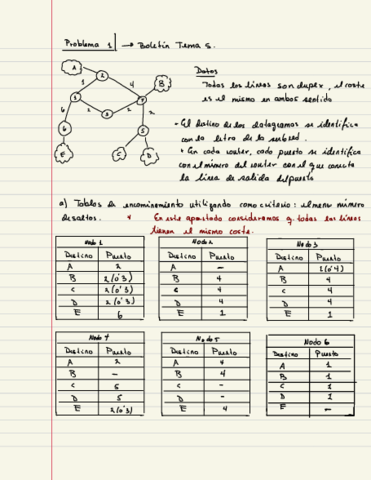 Problema 1 → Boletín Tema 5.
Datos
Todas las líneas son duplex, el coste
es el mismo en ambos sentido
- El destino de los datagramas se identifica
con la letra de la subred.
• En cada router, cada puerto se identifica
con el número del router con el que conecta
la línea de salida del puerto
A
B
C
D
E
1
4
6
2
a) Tablas de encaminamiento utilizando como criterio: el menor número
de saltos. * En este apartado consideramos q todas las líneas
tienen el mismo coste.
Nodo 1
Destino Puerto
A 2
B 2(o'3)
C 2(o'3)
D 2(o'3)
E 6
Nodo 2
Destino Puerto
A -
B 4
C 4
D 4
E 1
Nodo 3
Destino Puerto
A 1(o'4)
B 4
C 4
D 4
E 1
Nodo 4
Destino Puerto
A 2
B -
C 5
D 5
E 2(o'3)
Nodo 5
Destino Puerto
A 4
B 4
C -
D -
E 4
Nodo 6
Destino Puerto
A 1
B 1
C 1
D 1
E -